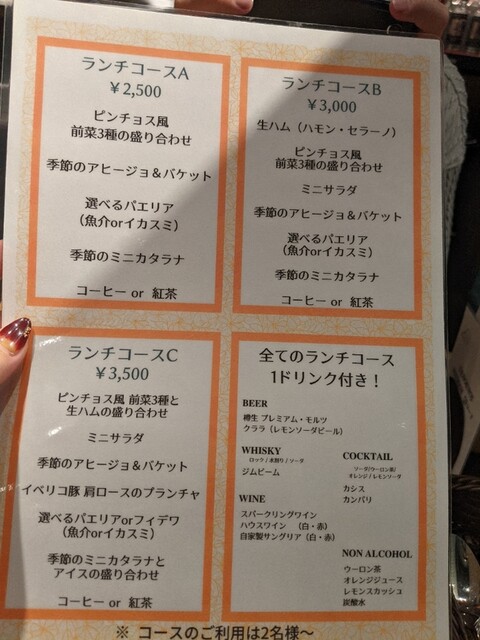 ランチコースA
￥2,500
ピンチョス風
前菜3種の盛り合わせ
季節のアヒージョ＆バケット
選べるパエリア
（魚介orイカスミ）
季節のミニカタラナ
コーヒー or 紅茶
ランチコースB
￥3,000
生ハム（ハモン・セラーノ）
ピンチョス風
前菜3種の盛り合わせ
ミニサラダ
季節のアヒージョ＆バケット
選べるパエリア
（魚介orイカスミ）
季節のミニカタラナ
コーヒー or 紅茶
ランチコースC
￥3,500
ピンチョス風 前菜3種と
生ハムの盛り合わせ
ミニサラダ
季節のアヒージョ＆バケット
イベリコ豚 肩ロースのプランチャ
選べるパエリアorフィデワ
（魚介orイカスミ）
季節のミニカタラナと
アイスの盛り合わせ
コーヒー or 紅茶
全てのランチコース
1ドリンク付き！
BEER
樽生 プレミアム・モルツ
クララ（レモンソーダビール）
WHISKY
ロック / 水割り / ソーダ
ジムビーム
WINE
スパークリングワイン
ハウスワイン （白・赤）
自家製サングリア（白・赤）
COCKTAIL
ソーダ/ウーロン茶/
オレンジ / レモンソーダ
カシス
カンパリ
NON ALCOHOL
ウーロン茶
オレンジジュース
レモンスカッシュ
炭酸水
※ コースのご利用は2名様～